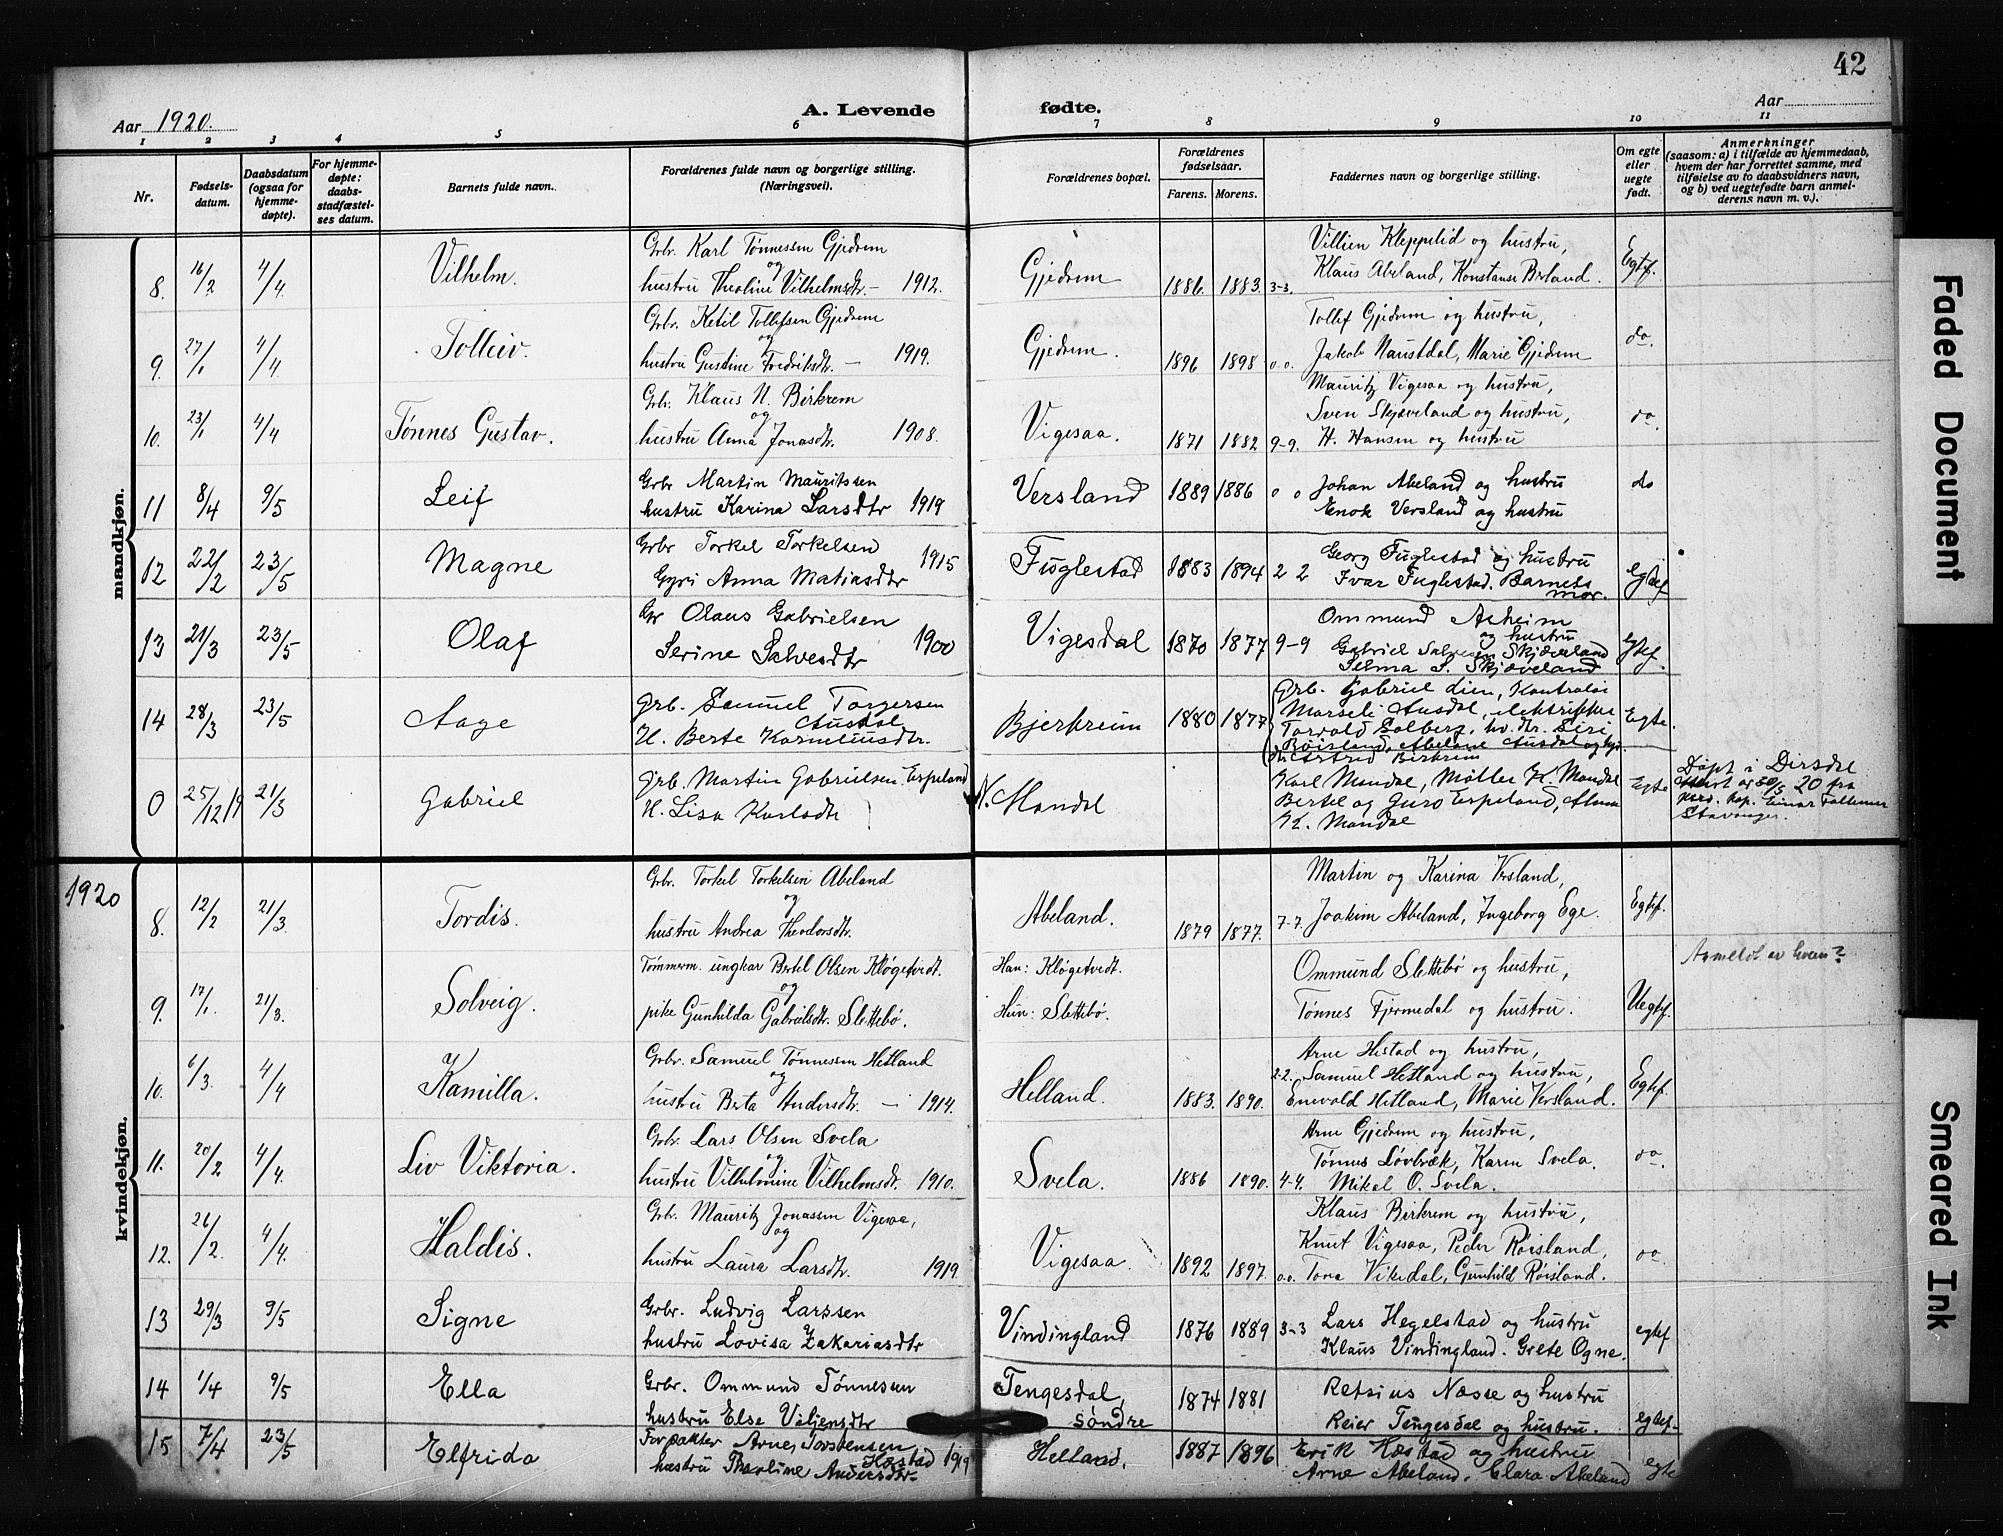 42
Aar 1920.
A. Levende fødte.
Aar
1 2 3 4 5 6 7 8 9 10 11
Nr.
Fødsels-
datum.
Daabsdatum
(ogsaa for
hjemme-
døpte).
For hjemme-
døpte:
daabs-
stadfæstel-
ses datum.
Barnets fulde navn.
Forældrenes fulde navn og borgerlige stilling.
(Næringsvei).
Forældrenes bopæl.
Forældrenes
fødselsaar.
Farens. Morens.
Faddernes navn og borgerlige stilling.
Om egte
eller
uegte
født.
Anmerkninger
(saasom: a) i tilfælde av hjemmedaab,
hvem der har forrettet samme, med
tilføielse av to daabsvidners navn,
og b) ved uegtefødte barn anmel-
derens navn m. v.).
mandkjøn.
8. 16/2 4/4 Vilhelm. Grbr. Karl Tønnessen Gjedrem
og
hustru Theoline Vilhelmsdtr. – 1912. Gjedrem 1886. 1883. 3-3. Villien Kleppelid og hustru,
Klaus Abeland, Konstanse Berland. Egtef.
9. 27/1 4/4 Tolleiv. Grbr. Ketil Tollefsen Gjedrem
og
hustru Gustine Fredriksdtr. – 1919. Gjedrem. 1896 1898 0-0. Tollef Gjedrem og hustru,
Jakob Naustdal, Marie Gjedrem do.
10. 23/1 4/4 Tønnes Gustav. Grbr. Klaus N. Birkrem
og
hustru Anna Jonasdtr. 1908. Vigesaa. 1871 1882 9-9. Mauritz Vigesaa og hustru,
Sven Skjæveland og hustru,
H. Hansen og hustru do.
11 8/4 9/5 Leif Grbr Martin Mauritssen
hustru Karina Larsdtr 1919 Versland 1889 1886 0 0 Johan Abeland og hustru
Enok Versland og hustru do
12 22/2 23/5 Magne Grbr Torkel Torkelsen 1915
Gyri Anna Matiasdtr Fuglestad 1883 1894 2 2 Georg Fuglestad og hustru
Ivar Fuglestad. Barnets
mor. egtef
13 21/3 23/5 Olaf Gr Olaus Gabrielsen
Serine Salvesdtr 1900 Vigesdal 1870 1877 9-9 Ommund Asheim
og hustru
Gabriel Salvesen Skjæveland
Selma S. Skjæveland egtef.
14 28/3 23/5 Aage Grb. Samuel Torgersen
Ausdal
H. Berte Korneliusdtr. Bjerkreim 1880 1877 Grb. Gabriel Lien, Kontrolør
Marseli Ausdal, elektriker
Torvald Solberg, hv. dtr. Siri
Røisland, Abelone Ausdal og
Astrid Birkrem Egte.
0 25/12 19 21/3 Gabriel Grb. Martin Gabrielsen Espeland
H. Lisa Karlsdtr N. Mandal Karl Mandal, Møller K. Mandal
Bertel og Guro Espeland, Anna
K. Mandal Egte Døpt i Dirdal
20 fra
res. kap. Einar
Stavanger.
1920
kvindekjøn.
8. 12/2 21/3. Tordis. Grbr. Torkel Torkelsen Abeland
og
hustru Andrea Theodorsdtr. Abeland. 1879 1877. 7-7. Martin og Karina Versland,
Joakim Abeland, Ingeborg Ege. Egtef.
9. 17/1. 21/3. Solveig. Tømmerm. ungkar Bertel Olsen Kløgetvedt.
og
pike Gunhilda Gabrielsdtr. Slettebø. Han: Kløgetvedt.
Hun: Slettebø. Ommund Slettebø og hustru,
Tønnes Fjermedal og hustru. Uegtef. Anmeldt av hvem?
10. 6/3. 4/4 Kamilla. Grbr. Samuel Tønnessen Hetland
og
hustru Berta Andersdtr. – 1914. Helland. 1883. 1890. 2-2. Arne Hestad og hustru,
Samuel Hetland og hustru,
Enevald Hetland, Marie Versland. Egtef.
11. 20/2 4/4. Liv Viktoria. Grbr. Lars Olsen Svela
og
hustru Vilhelmine Vilhelmsdt. 1910. Svela. 1886 1890. 4-4. Arne Gjedrem og hustru,
Tønnes Løvbræk, Karen Svela.
Mikal O. Svela. do.
12. 26/2. 4/4. Haldis. Grbr. Mauritz Jonassen Vigesaa,
og
hustru Laura Larsdtr. 1919. Vigesaa. 1892 1897. 0.0. Klaus Birkrem og hustru,
Knut Vigesaa, Peder Røisland,
Tona Vikedal, Gunhild Røisland. do.
13 29/3 9/5 Signe Grbr. Ludvig Larssen
hustru Lovisa Zakariasdtr Vindingland 1876 1889 3-3 Lars Hegelstad og hustru
Klaus Vindingland. Grete Ogne. egtef
14 1/4 9/5 Ella Grbr. Ommund Tønnessen
hustru Else Viljensdtr Tengesdal,
søndre 1874 1881 Retsius Næsse og hustru
Reier Tengesdal og hustru. egtef.
15 7/4 23/5 Elfrida Forpakter Arne Torstensen
Hæstad 1919
hustru Theoline Andersdtr. Helland. 1887 1896 Erik Hæstad og hustru
Arne Abeland. Clara Abeland egte
Faded Document
Smeared Ink